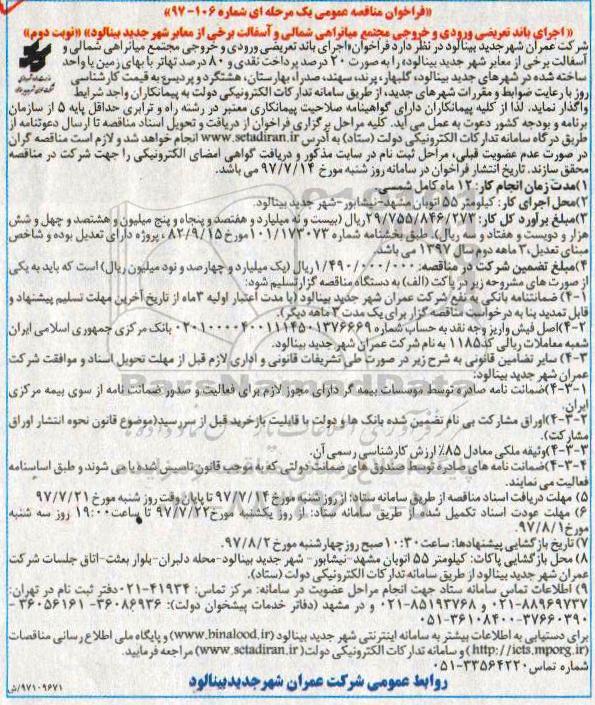 «فراخوان مناقصه عمومی یک مرحله ای شماره ۱۰۶-۹۷»
« اجرای باند تعریضی ورودی و خروجی مجتمع میانراهی شمالی و آسفالت برخی از معابر شهر جدید بینالود» «نوبت دوم»
شرکت عمران شهر جدید بینالود در نظر دارد فراخوان«اجرای باند تعریضی ورودی و خروجی مجتمع میانراهی شمالی و
آسفالت برخی از معابر شهر جدید بینالود» را به صورت ۲۰ درصد پرداخت نقدی و ۸۰ درصد تهاتر با بهای زمین یا واحد
ساخته شده در شهرهای جدید بینالود، گلبهار، پرند، سهند، صدرا، بهارستان، هشتگرد و پردیس به قیمت کارشناسی
روز با رعایت ضوابط و مقررات شهرهای جدید، از طریق سامانه تدارکات الکترونیکی دولت به پیمانکاران واجد شرایط
واگذار نماید. لذا از کلیه پیمانکاران دارای گواهینامه صلاحیت پیمانکاری معتبر در رشته راه و ترابری حداقل پایه ۵ از سازمان
برنامه و بودجه کشور دعوت به عمل می آید. کلیه مراحل برگزاری فراخوان از دریافت و تحویل اسناد مناقصه تا ارسال دعوتنامه از
طریق درگاه سامانه تدارکات الکترونیکی دولت (ستاد) به آدرس www.setadiran.ir انجام خواهد شد و لازم است مناقصه گران
در صورت عدم عضویت قبلی، مراحل ثبت نام در سایت مذکور و دریافت گواهی امضای الکترونیکی را جهت شرکت در مناقصه
محقق سازند. تاریخ انتشار فراخوان در سامانه روز شنبه مورخ ۹۷/۷/۱۴ می باشد.
۱)مدت زمان انجام کار: ۱۲ ماه کامل شمسی.
۲)محل اجرای کار: کیلومتر ۵۵ اتوبان مشهد-نیشابور-شهر جدید بینالود.
۳)مبلغ برآورد کل کار: ۲۹/۷۵۵/۸۴۶/۲۷۳ریال (بیست و نه میلیارد و هفتصد و پنجاه و پنج میلیون و هشتصد و چهل و شش
هزار و دویست و هفتاد و سه ریال) طبق بخشنامه شماره ۱۰۱/۱۷۳۰۷۳مورخ ۸۲/۹/۱۵ ، پروژه دارای تعدیل بوده و شاخص
مبنای تعدیل،۳ ماهه دوم سال ۱۳۹۷ می باشد.
۴)مبلغ تضمین شرکت در مناقصه: ۱/۴۹۰/۰۰۰/۰۰۰ریال (یک میلیارد و چهارصد و نود میلیون ریال) است که باید به یکی
از صورت های مشروحه زیر در پاکت (الف) به دستگاه مناقصه گزار تسلیم شود:
۴-۱) ضمانتنامه بانکی به نفع شرکت عمران شهر جدید بینالود (با مدت اعتبار اولیه ۳ماه از تاریخ آخرین مهلت تسلیم پیشنهاد و
قابل تمدید بنا به درخواست مناقصه گزار برای یک مدت ۳ ماهه دیگر).
۴-۲)اصل فیش واریز وجه نقد به حساب شماره ۰۲۰۱۰۰۰۰۴۰۰۱۱۱۴۵۰۱۳۷۶۶۶۹ بانک مرکزی جمهوری اسلامی ایران
شعبه معاملات ریالی کد ۱۱۸۵ به نام شرکت عمران شهر جدید بینالود.
۴-۳) سایر تضامین قانونی به شرح زیر در صورت طی تشریفات قانونی و اداری لازم قبل از مهلت تحویل اسناد و موافقت شرکت
عمران شهر جدید بینالود:
۴-۳-۱)ضمانت نامه صادره توسط موسسات بیمه گر دارای مجوز لازم برای فعالیت و صدور ضمانت نامه از سوی بیمه مرکزی
ایران.
۴-۳-۲)اوراق مشارکت بی نام تضمین شده بانک ها و دولت با قابلیت بازخرید قبل از سررسید(موضوع قانون نحوه انتشار اوراق
مشارکت).
۴-۳-۳)وثیقه ملکی معادل ۸۵٪ ارزش کارشناسی رسمی آن.
۴-۳-۴)ضمانت نامه های صادره توسط صندوق های ضمانت دولتی که به موجب قانون تاسیس شده یا می شوند و طبق اساسنامه
فعالیت می نمایند.
۵) مهلت دریافت اسناد مناقصه از طریق سامانه ستاد: از روز شنبه مورخ ۹۷/۷/۱۴ تا پایان وقت روز شنبه مورخ ۹۷/۷/۲۱
۶) مهلت عودت اسناد تکمیل شده از طریق سامانه ستاد: از روز یکشنبه مورخ۹۷/۷/۲۲ تا ساعت۱۹:۰۰ روز سه شنبه
مورخ۹۷/۸/۱.
۷) تاریخ بازگشایی پیشنهادها: ساعت۱۰:۳۰صبح روز چهارشنبه مورخ ۹۷/۸/۲.
۸) محل بازگشایی پاکات: کیلومتر ۵۵ اتوبان مشهد-نیشابور- شهر جدید بینالود-محله دلبران-بلوار بعثت-اتاق جلسات شرکت
عمران شهر جدید بینالود از طریق سامانه تدارکات الکترونیکی دولت (ستاد).
۹) اطلاعات تماس سامانه ستاد جهت انجام مراحل عضویت در سامانه: مرکز تماس: ۴۱۹۳۴-۰۲۱دفتر ثبت نام در تهران:
۸۸۹۶۹۷۳۷-۰۲۱ و ۸۵۱۹۳۷۶۸-۰۲۱ و در مشهد (دفاتر خدمات پیشخوان دولت): ۳۶۰۸۶۹۳۶- ۳۶۰۵۶۱۶۱ -
۳۷۶۶۰۳۹۰-۳۶۱۰۸۴۰۰-۰۵۱
برای دستیابی به اطلاعات بیشتر به سامانه اینترنتی شهر جدید بینالود (www.binalood.ir) و پایگاه ملی اطلاع رسانی مناقصات
(http://iets.mporg.ir) و سامانه تدارکات الکترونیکی دولت( www.setadiran.ir) مراجعه فرمایید.
شماره تماس۳۳۵۶۴۲۲۰-۰۵۱
روابط عمومی شرکت عمران شهر جدید بینالود
۹۷۱۰۹۶۷۱/ش